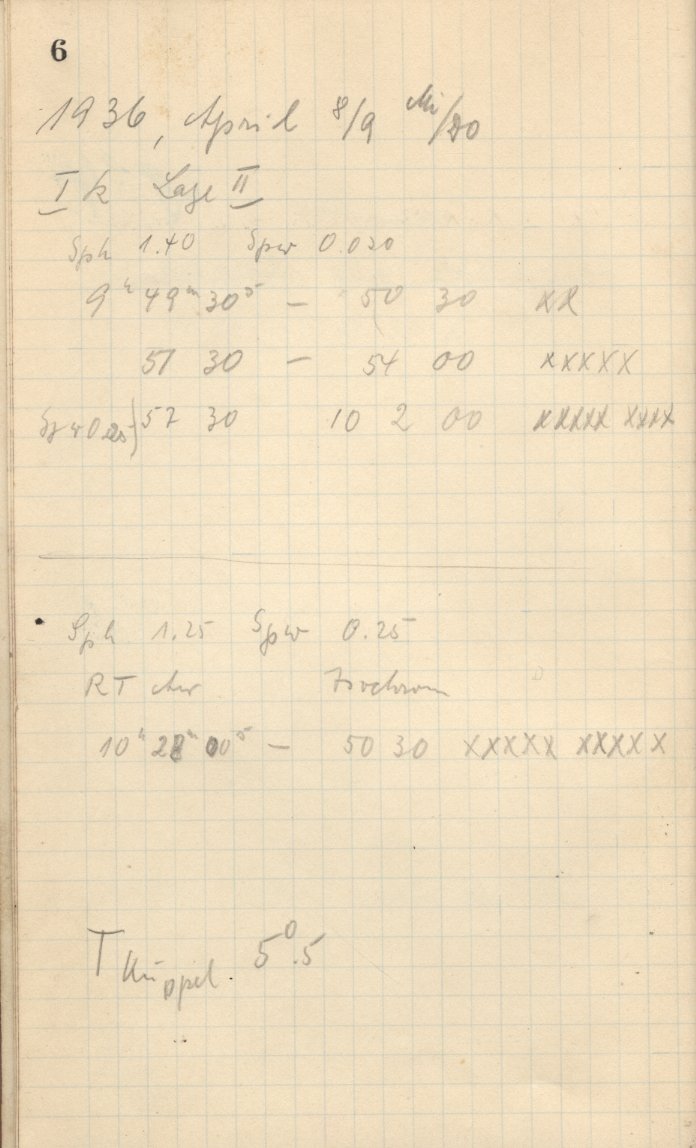 6
1936, April 8/9 Mi/Do
I k Lage II
Sph 1.40 Spw 0.020
9h 49m 30s — 50 30 xx
51 30 — 54 00 xxxxx
Spw 0.25 } 57 30 10 2 00 xxxxx xxxx
Sph 1.25 Spw 0.25
RT Aur Isochrom
10h 28m 00s — 50 30 xxxxx xxxxx
T Kuppel. 5°.5